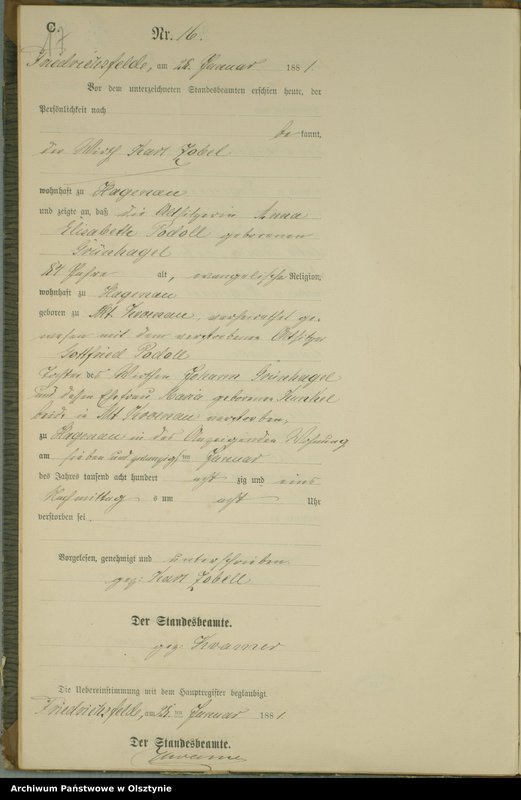 C.
17
Nr. 16.
Friedrichsfelde, am 28. Januar 1881.
Vor dem unterzeichneten Standesbeamten erschien heute, der
Persönlichkeit nach
be kannt,
der Wirth Karl Zobel
wohnhaft zu Hagenau
und zeigte an, daß die Altsitzerin Anna
Elisabeth Podoll geborenen
Grünhagel
84 Jahre alt, evangelische Religion,
wohnhaft zu Hagenau
geboren zu Alt , verheirathet ge-
wesen mit dem verstorbenen Altsitzer
Gottfried Podoll
Tochter des Wirthen Johann Grünhagel
und dessen Ehefrau Maria geborene
beide in Alt verstorben,
zu Hagenau in des Anzeigenden Wohnung
am sieben und zwanzigsten Januar
des Jahres tausend acht hundert acht zig und eins
Nachmittag s um acht Uhr
verstorben sei.
Vorgelesen, genehmigt und unterschrieben
gez: Karl Zobell
Der Standesbeamte.
gez: Kramer
Die Uebereinstimmung mit dem Hauptregister beglaubigt
Friedrichsfelde, am 28. ten Januar 1881.
Der Standesbeamte.
Kramer
Archiwum Państwowe w Olsztynie